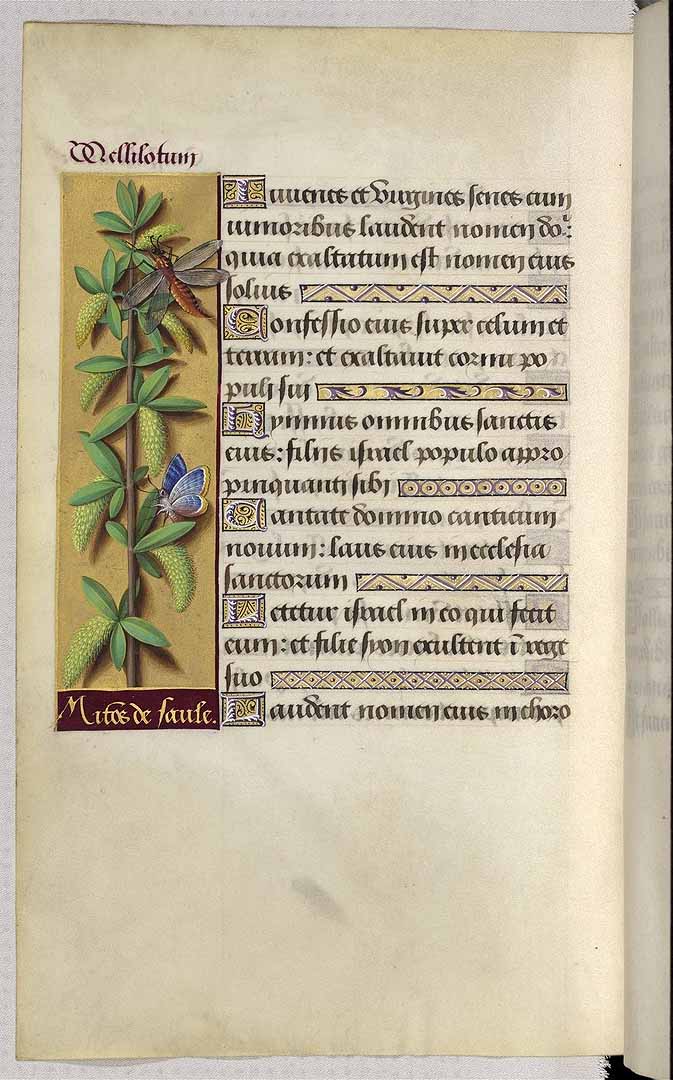 Mellilotum
Iuuenes et Virgines senes cum
iunioribus laudent nomen do
quia exaltatum est nomen eius
solius
Confessio eius super celum et
terram: et exaltauit cornu po
puli sui
Hymnus omnibus sanctis
eius: filijs israel populo appro
pinquanti sibi
Cantate domino canticum
nouum: laus eius in ecclesia
sanctorum
Letetur israel in eo qui fecit
eum: et filie syon exultent i rege
suo
Laudent nomen eius in choro
Mitōs de saule.